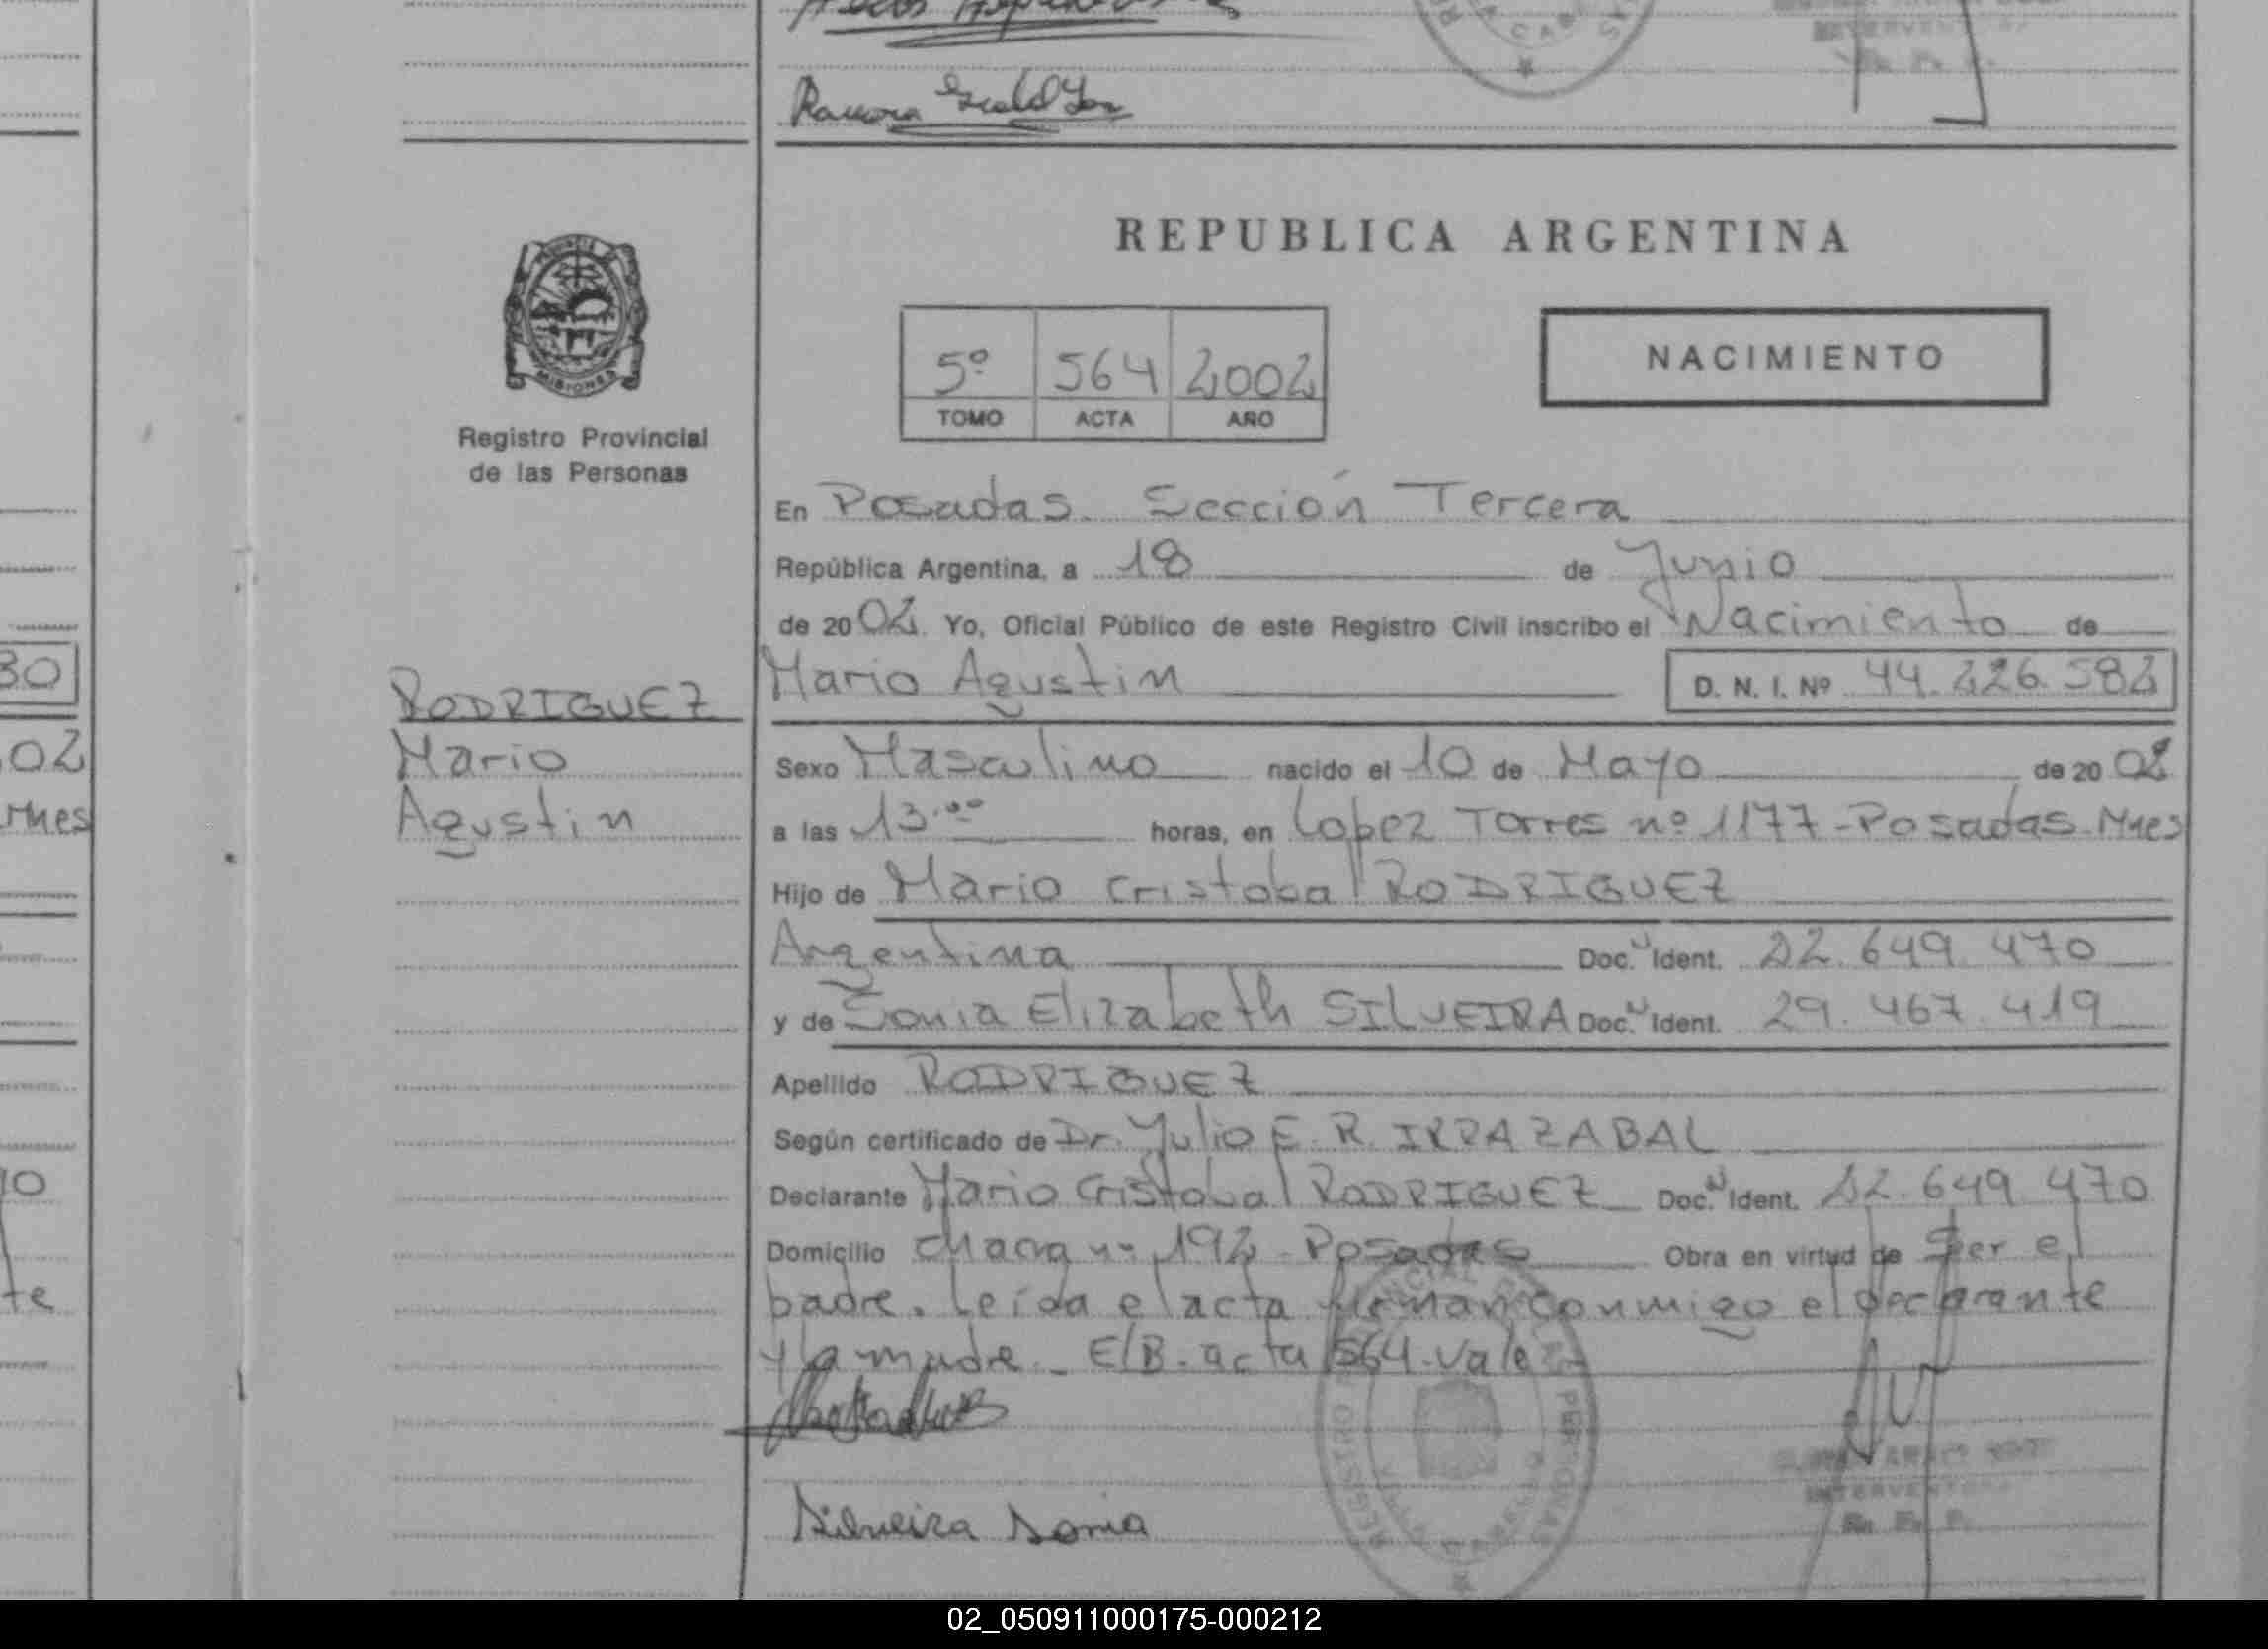 Ramona
REPUBLICA ARGENTINA
MISIONES
Registro Provincial
de las Personas
5º 564 2002
TOMO ACTA AÑO
NACIMIENTO
En Posadas. Sección Tercera
República Argentina, a 18 de Junio
de 2002. Yo, Oficial Público de este Registro Civil inscribo el Nacimiento de
30
RODRIGUEZ
Mario Agustin D. N. I. Nº 44.226.582
02
Mario
Sexo Masculino nacido el 10 de Mayo de 2002
Mnes
Agustin
a las 13.⁰⁰ horas, en Lopez Torres nº 1177-Posadas-Mnes
Hijo de Mario Cristobal RODRIGUEZ
Argentina Doc. Ident. 22.649.470
y de Sonia Elizabeth SILVEIRA Doc. Ident. 29.467.419
Apellido RODRIGUEZ
Según certificado de Dr. Julio E. R. IRRAZABAL
10
Declarante Mario Cristobal RODRIGUEZ Doc. Ident. 22.649.470
Domicilio chacra nº 192-Posadas Obra en virtud de ser el
te
padre. Leída el acta firman conmigo el declarante
y la madre. E/B. acta 564. vale
REGISTRO PROVINCIAL DE LAS PERSONAS
INTERVENTORA
R. P. P.
Silveira Sonia
02_050911000175-000212